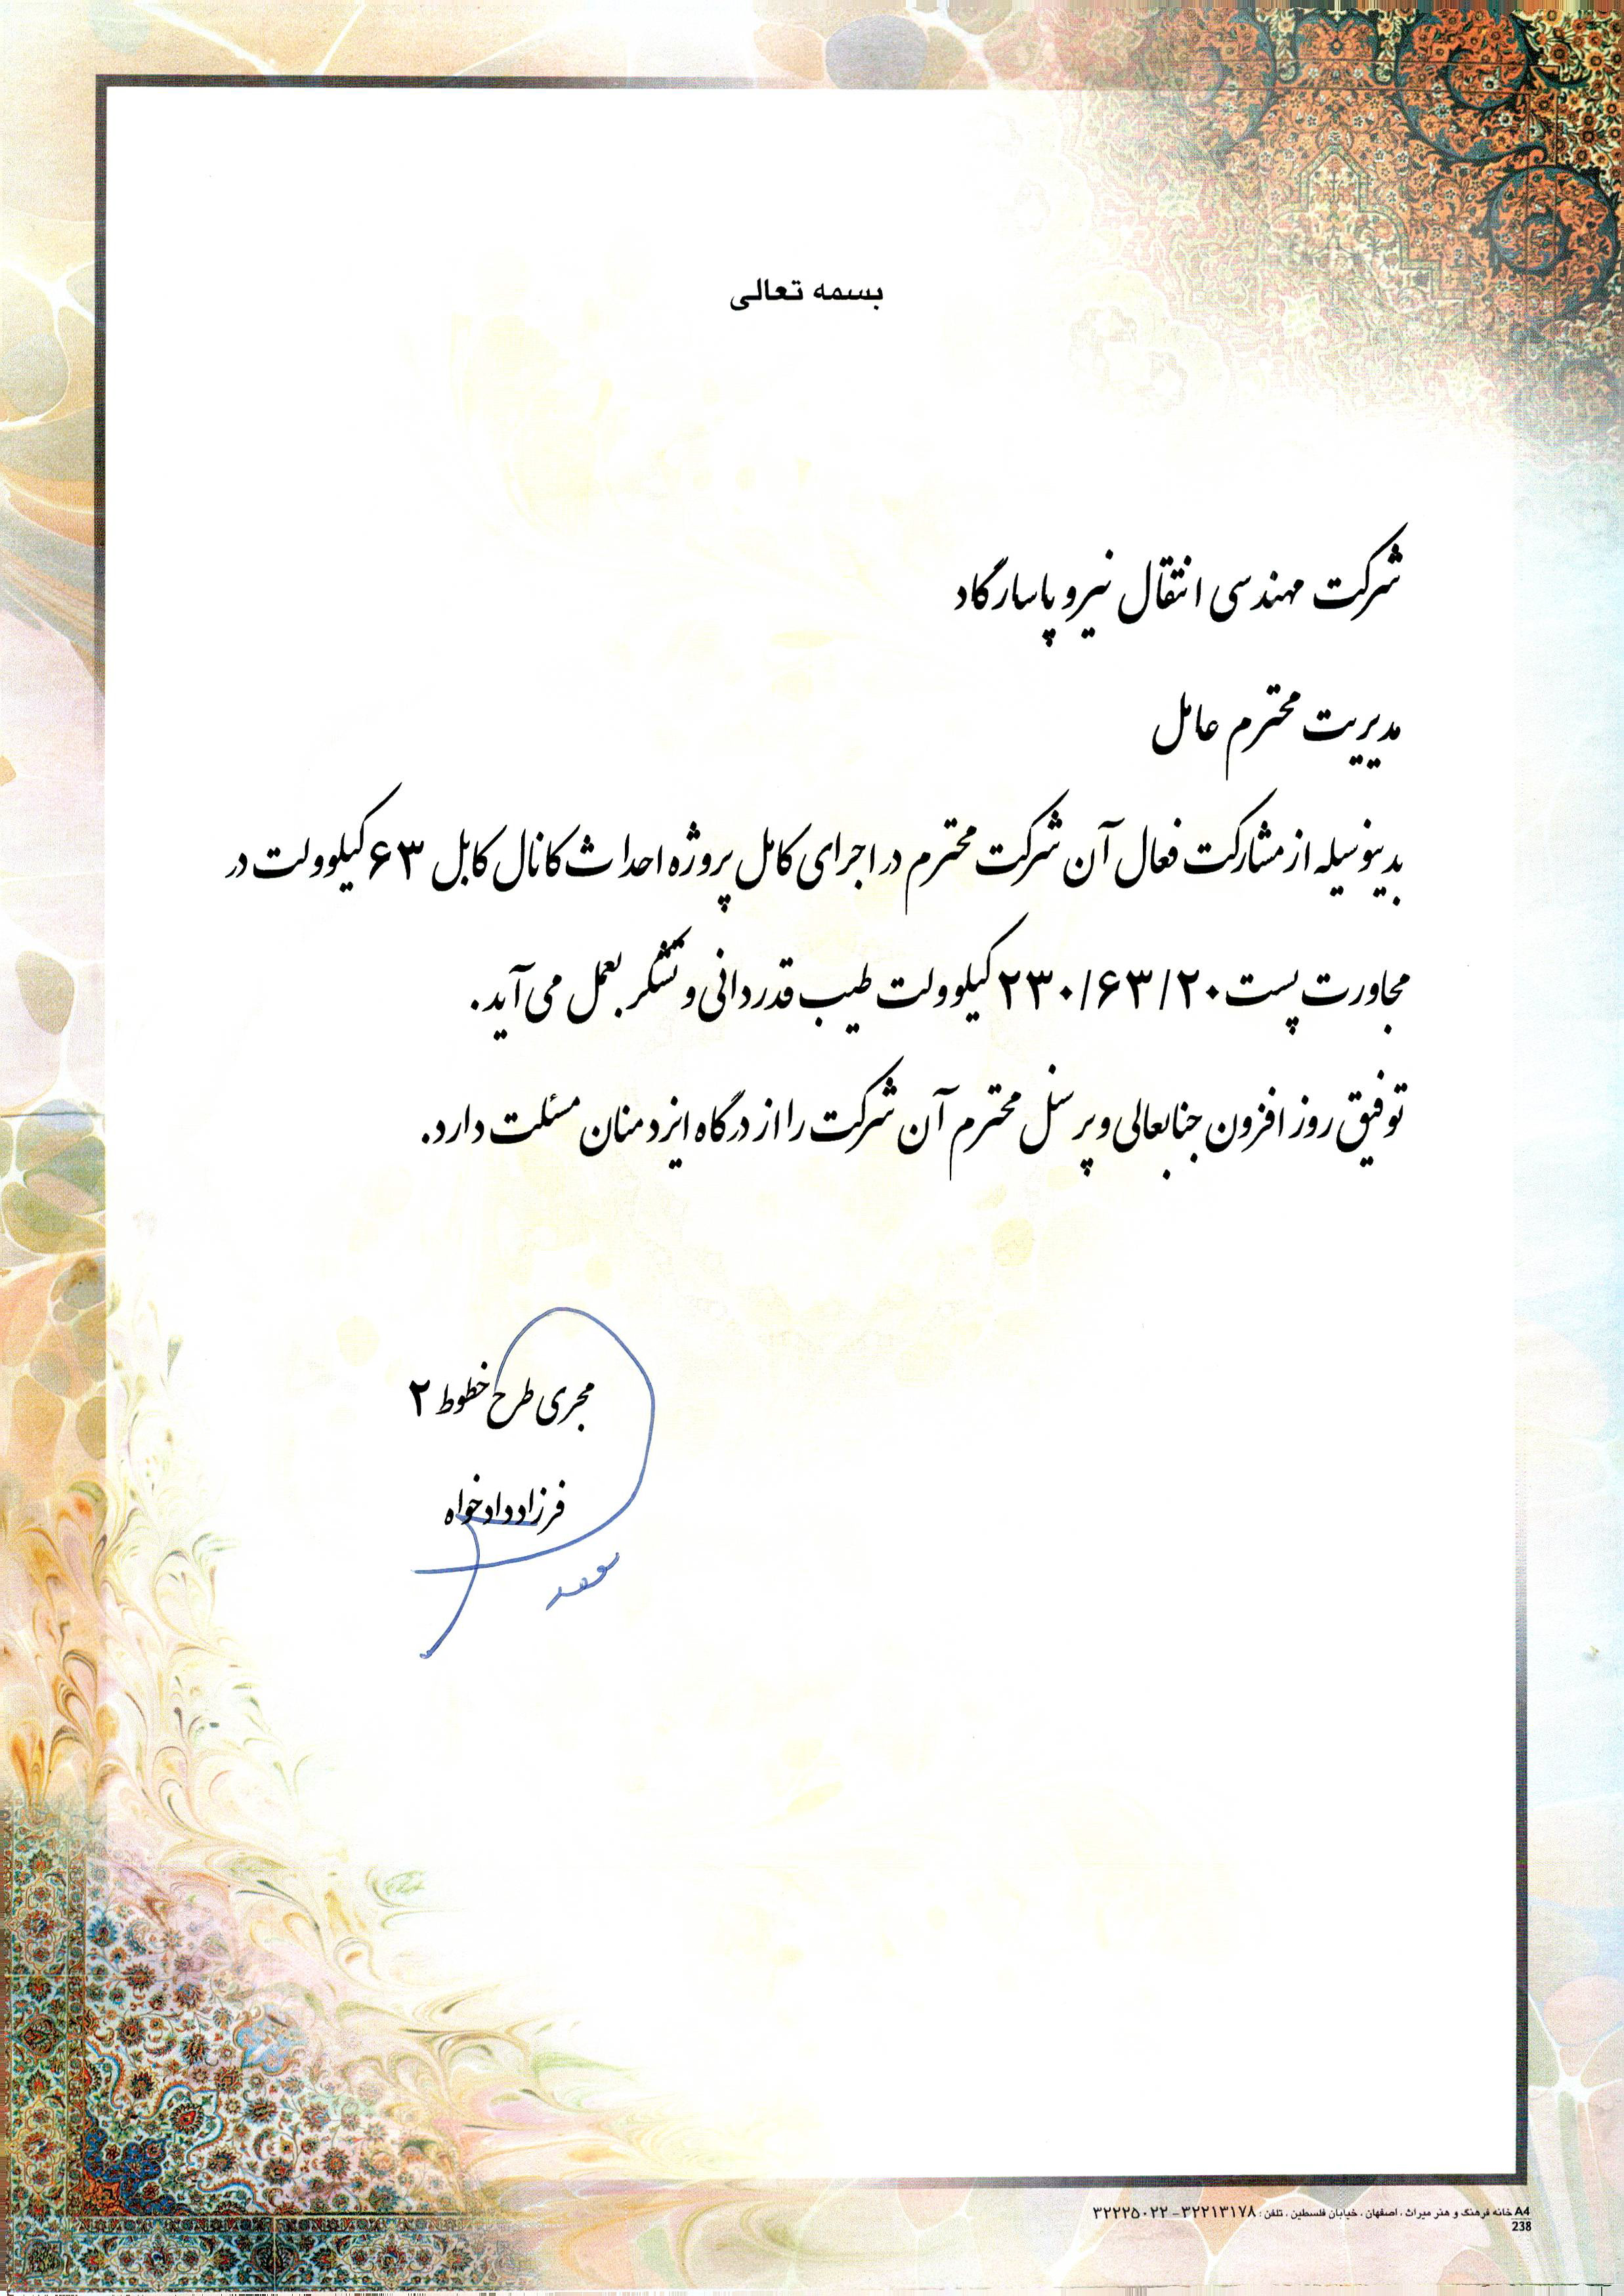 بسمه تعالی
شرکت مهندسی انتقال نیرو پاسارگاد
مدیریت محترم عامل
بدینوسیله از مشارکت فعال آن شرکت محترم در اجرای کامل پروژه احداث کانال کابل ۶۳ کیلوولت در
مجاورت پست ۲۳۰/۶۳/۲۰ کیلوولت طیب قدردانی و تشکر بعمل می آید.
توفیق روز افزون جنابعالی و پرسنل محترم آن شرکت را از درگاه ایزد منان مسئلت دارد.
مجری طرح خطوط ۲
فرزاد دادخواه
A4 خانه فرهنگ و هنر میراث ، اصفهان ، خیابان فلسطین ، تلفن : ۳۲۲۱۳۱۷۸ - ۳۲۲۲۵۰۲۲
238